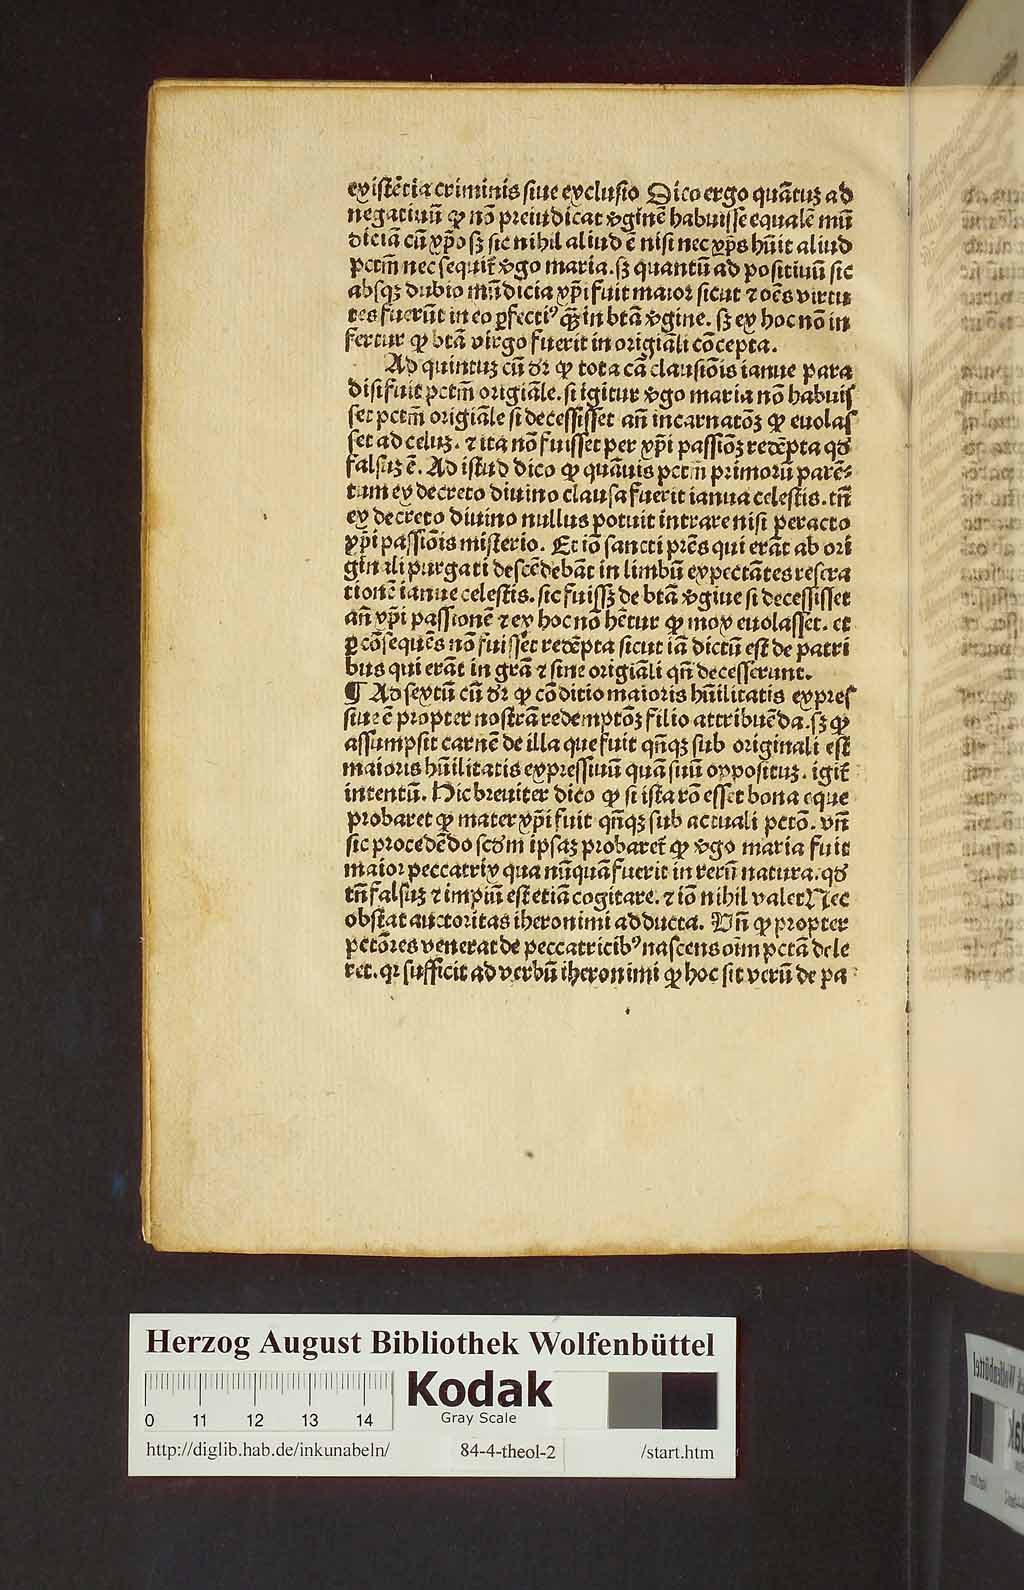 existẽtia criminis siue exclusio Dico ergo quãtuʒ ad
negatiuũ ꝙ nõ preiudicat v̾ginẽ habuisse equalẽ mũ
diciã cũ xp̃o sʒ sic nihil aliud ẽ nisi nec xp̃s hũit aliud
pctm̃ nec sequit᷑ v̾go maria. sʒ quantũ ad positiuũ sic
absqʒ dubio mũdicia xp̃i fuit maior sicut ⁊ oẽs virtu
tes fuerũt in eo ꝑfectiꝰ qʒ̃ in btã v̾gine. sʒ ex hoc nõ in
fertur ꝙ btã virgo fuerit in origiãli cõcepta.
Ad quintuʒ cũ dr̃ ꝙ tota cã clausiõis ianue para
disi fuit pctm̃ origiãle. si igitur v̾go maria nõ habuiſ
set pctm̃ origiãle si decessisset añ incarnatõʒ ꝙ euolaſ
set ad celuʒ. ⁊ ita nõ fuisset per xp̃i passiõʒ redẽpta qd̾
falsuʒ ẽ. Ad istud dico ꝙ quãuis pctm̃ primorũ parẽ⸗
tum ex decreto diuino clausa fuerit ianua celestis. tñ
ex decreto diuino nullus potuit intrare nisi peracto
xp̃i passiõis misterio. Et iõ sancti prẽs qui erãt ab ori
ginali purgati descẽdebãt in limbũ expectãtes resera
tionẽ ianue celestis. sic fuissʒ de btã v̾gine si decessisset
añ xp̃i passionẽ ⁊ ex hoc nõ hẽtur ꝙ mox euolasset. et
ꝑ cõsequẽs nõ fuisset redẽpta sicut iã dictũ est de patri
bus qui erãt in grã ⁊ sine origiãli qñ decesserunt.
¶ Ad sextũ cũ dr̃ ꝙ cõditio maioris hũilitatis expreſ
siue ẽ propter nostrã redemptõʒ filio attribuẽda. sʒ ꝙ
assumpsit carnẽ de illa que fuit qñqʒ sub originali est
maioris hũilitatis expressiuũ quã suũ oppositũʒ. igit᷑
intentũ. Hic breuiter dico ꝙ si ista rõ esset bona eque
probaret ꝙ mater xp̃i fuit qñqʒ sub actuali pctõ. vñ
sic procedẽdo scd̾m ipsaʒ probaret᷑ ꝙ v̾go maria fuit
maior peccatrix qua nũquã fuerit in rerũ natura. qd̾
tñ falsuʒ ⁊ impiũ est etiã cogitare. ⁊ iõ nihil valet Nec
obstat auctoritas iheronimi adducta. Vñ ꝙ propter
pctõres venerat de peccatricibꝰ nascens oim pctã dele
ret. qr sufficit ad verbũ iheronimi ꝙ hoc sit verũ de pa
Herzog August Bibliothek Wolfenbüttel
Kodak
Gray Scale
0 11 12 13 14
http://diglib.hab.de/inkunabeln/ 84-4-theol-2 /start.htm